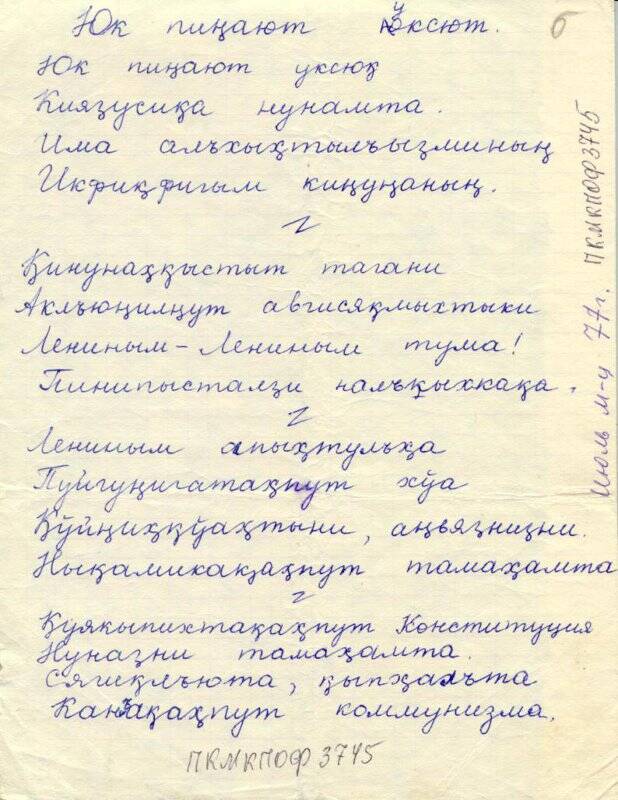 Юк пиӈают Уксют.
б
Юк пиӈают уксюӄ
Кияӄусиӄа нунамта.
Има алъхыӽтылъыӷминыӈ
Икфиӄфигым киӈуӈаныӈ.
Қинунаӽӄыстыт тагани
Аклъюӈилӈут авгисяӄмыхтыки
Лениным-Лениным тума!
Пинипысталӷи налъӄыхкаӄа.
Лениным апыӽтулъӽа
Пуйгуӈигатаӄпут хўа
Қўйӈиӽӄўаӽтыни, аӈвяӷниӷни.
Ныӄамикаӄаӽпут тамаӽамта
Қуякыпихтаӄаӽпут Конституция
Нунаӷни тамаӽамта.
Сягиӄлъюта, ӄыпӽалъта
Канаӄаӽпут коммунизма.
ПКМКПОФ 3745
Июль м-ц 77 г. ПКМКПОФ 3745